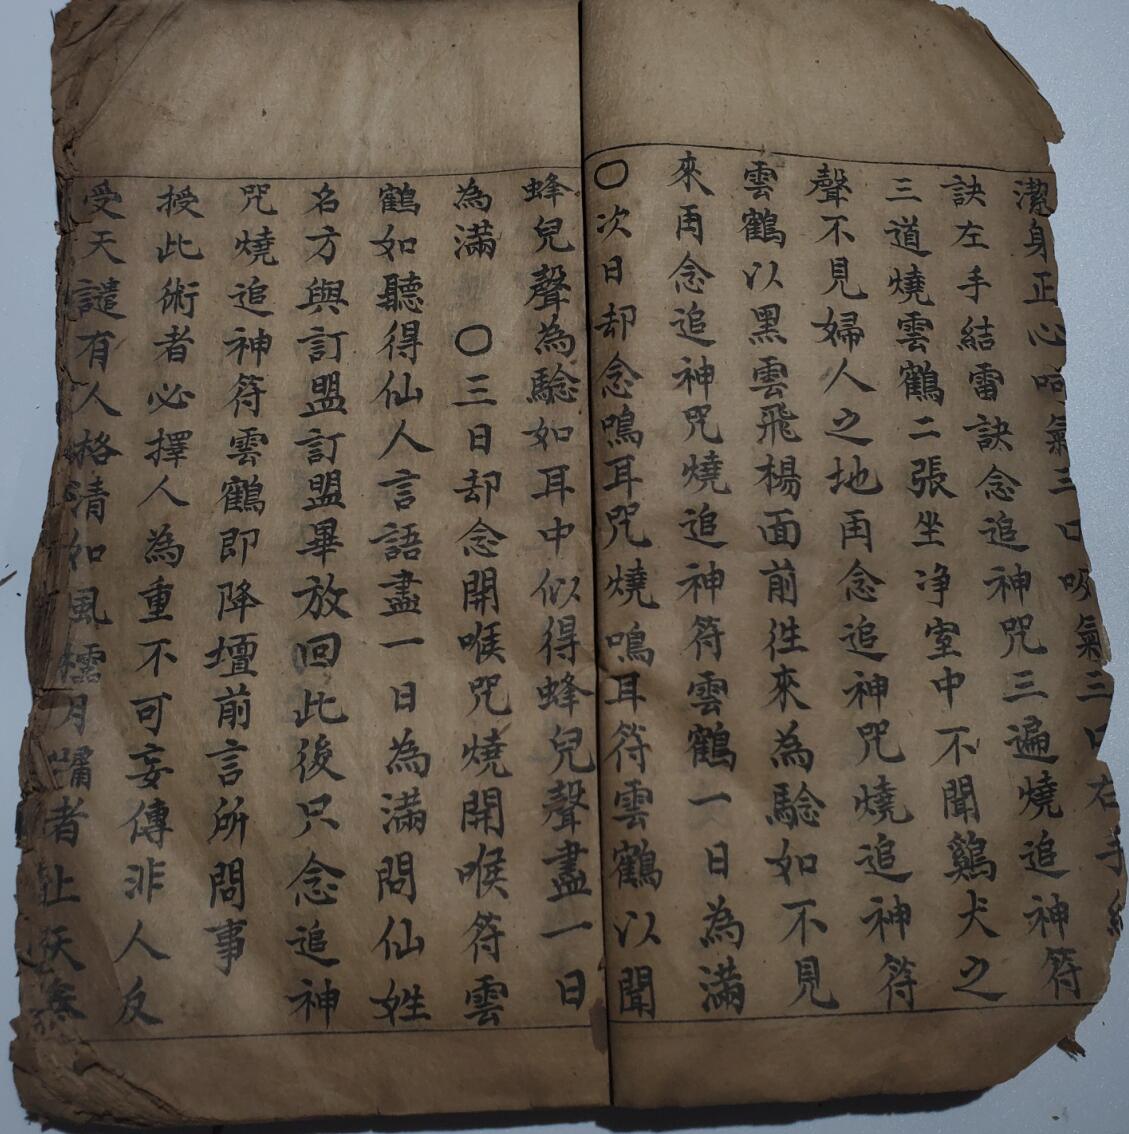 潔身正心呵氣三口吸氣三口右手結
訣左手結雷訣念追神咒三遍燒追神符
三道燒雲鶴二張坐净室中不聞鷄犬之
聲不見婦人之地再念追神咒燒追神符
雲鶴以黑雲飛楊面前徃來為驗如不見
來再念追神咒燒追神符雲鶴一日為滿
〇次日却念鳴耳咒燒鳴耳符雲鶴以聞
蜂兒聲為驗如耳中似得蜂兒聲盡一日
為滿 〇三日却念開喉咒燒開喉符雲
鶴如聽得仙人言語盡一日為滿問仙姓
名方與訂盟訂盟畢放回此後只念追神
咒燒追神符雲鶴即降壇前言所問事
授此術者必擇人為重不可妄傳非人反
受天譴有人格清如風月嘯者